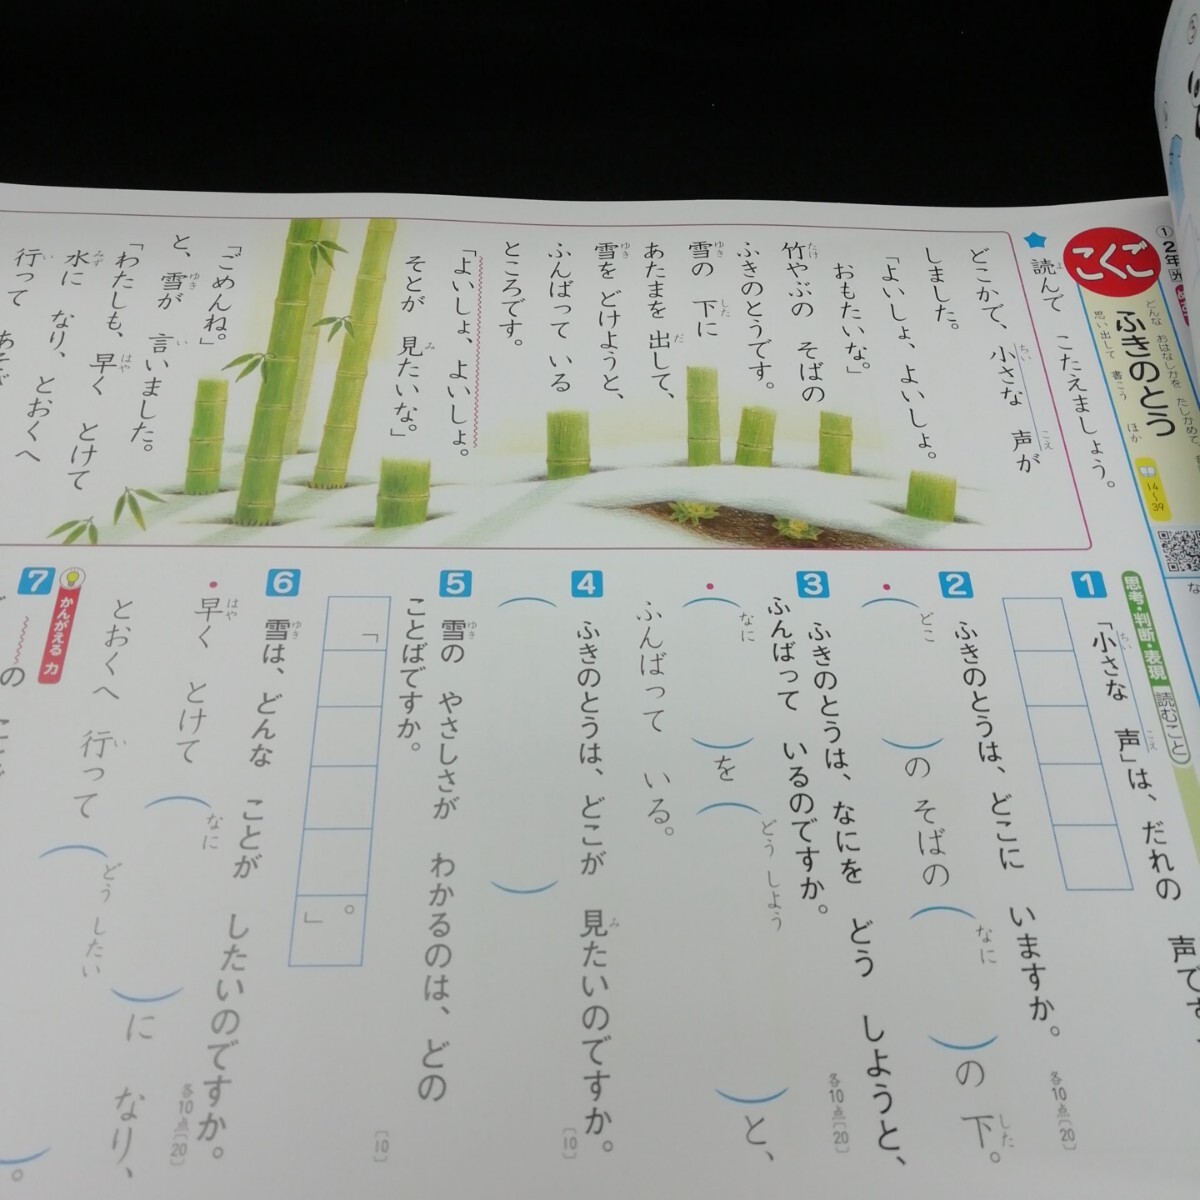 こくご
①2年
どんな おはなしかを たしかめて、
思い出して 書こう
ふきのとう
ほか
14〜39
★読んで こたえましょう。
どこかで、小さな 声が
しました。
「よいしょ、よいしょ。
おもたいな。」
竹やぶの そばの
ふきのとうです。
雪の 下に
あたまを 出して、
雪を どけようと、
ふんばって いる
ところです。
「よいしょ、よいしょ。
そとが 見たいな。」
「ごめんね。」
と、雪が 言いました。
「わたしも、早く とけて
水に なり、とおくへ
行って あそび
思考・判断・表現 読むこと
1 「小さな 声」は、だれの 声です
2 ふきのとうは、どこに いますか。 各10点〔20〕
（どこ）の そばの（なに）の 下。
3 ふきのとうは、なにを どう しようと、
ふんばって いるのですか。 各10点〔20〕
・（なに）を（どう しよう）と、
ふんばって いる。
4 ふきのとうは、どこが 見たいのですか。〔10〕
（ ）
5 雪の やさしさが わかるのは、どの
ことばですか。〔10〕
「 。」
6 雪は、どんな ことが したいのですか。 各10点〔20〕
・早く とけて（なに）に なり、
とおくへ 行って（どう したい）。
かんがえる 力
7
の